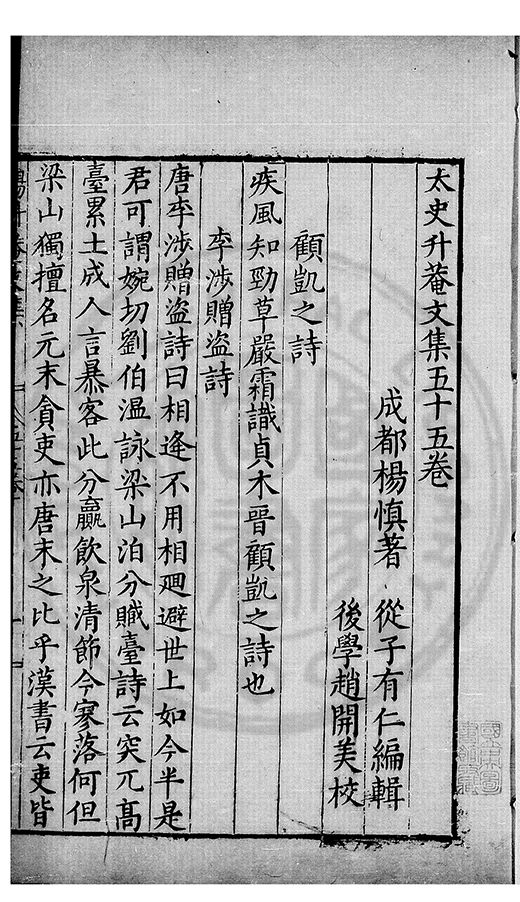 太史升菴文集五十五卷
成都楊慎著 從子有仁編輯
後學趙開美校
顧凱之詩
疾風知勁草嚴霜識貞木晉顧凱之詩也
李涉贈盜詩
唐李涉贈盜詩曰相逢不用相迴避世上如今半是
君可謂婉切劉伯溫詠梁山泊分贓臺詩云突兀高
臺累土成人言暴客此分贏飲泉清節今寥落何但
梁山獨擅名元末貪吏亦唐末之比乎漢書云吏皆